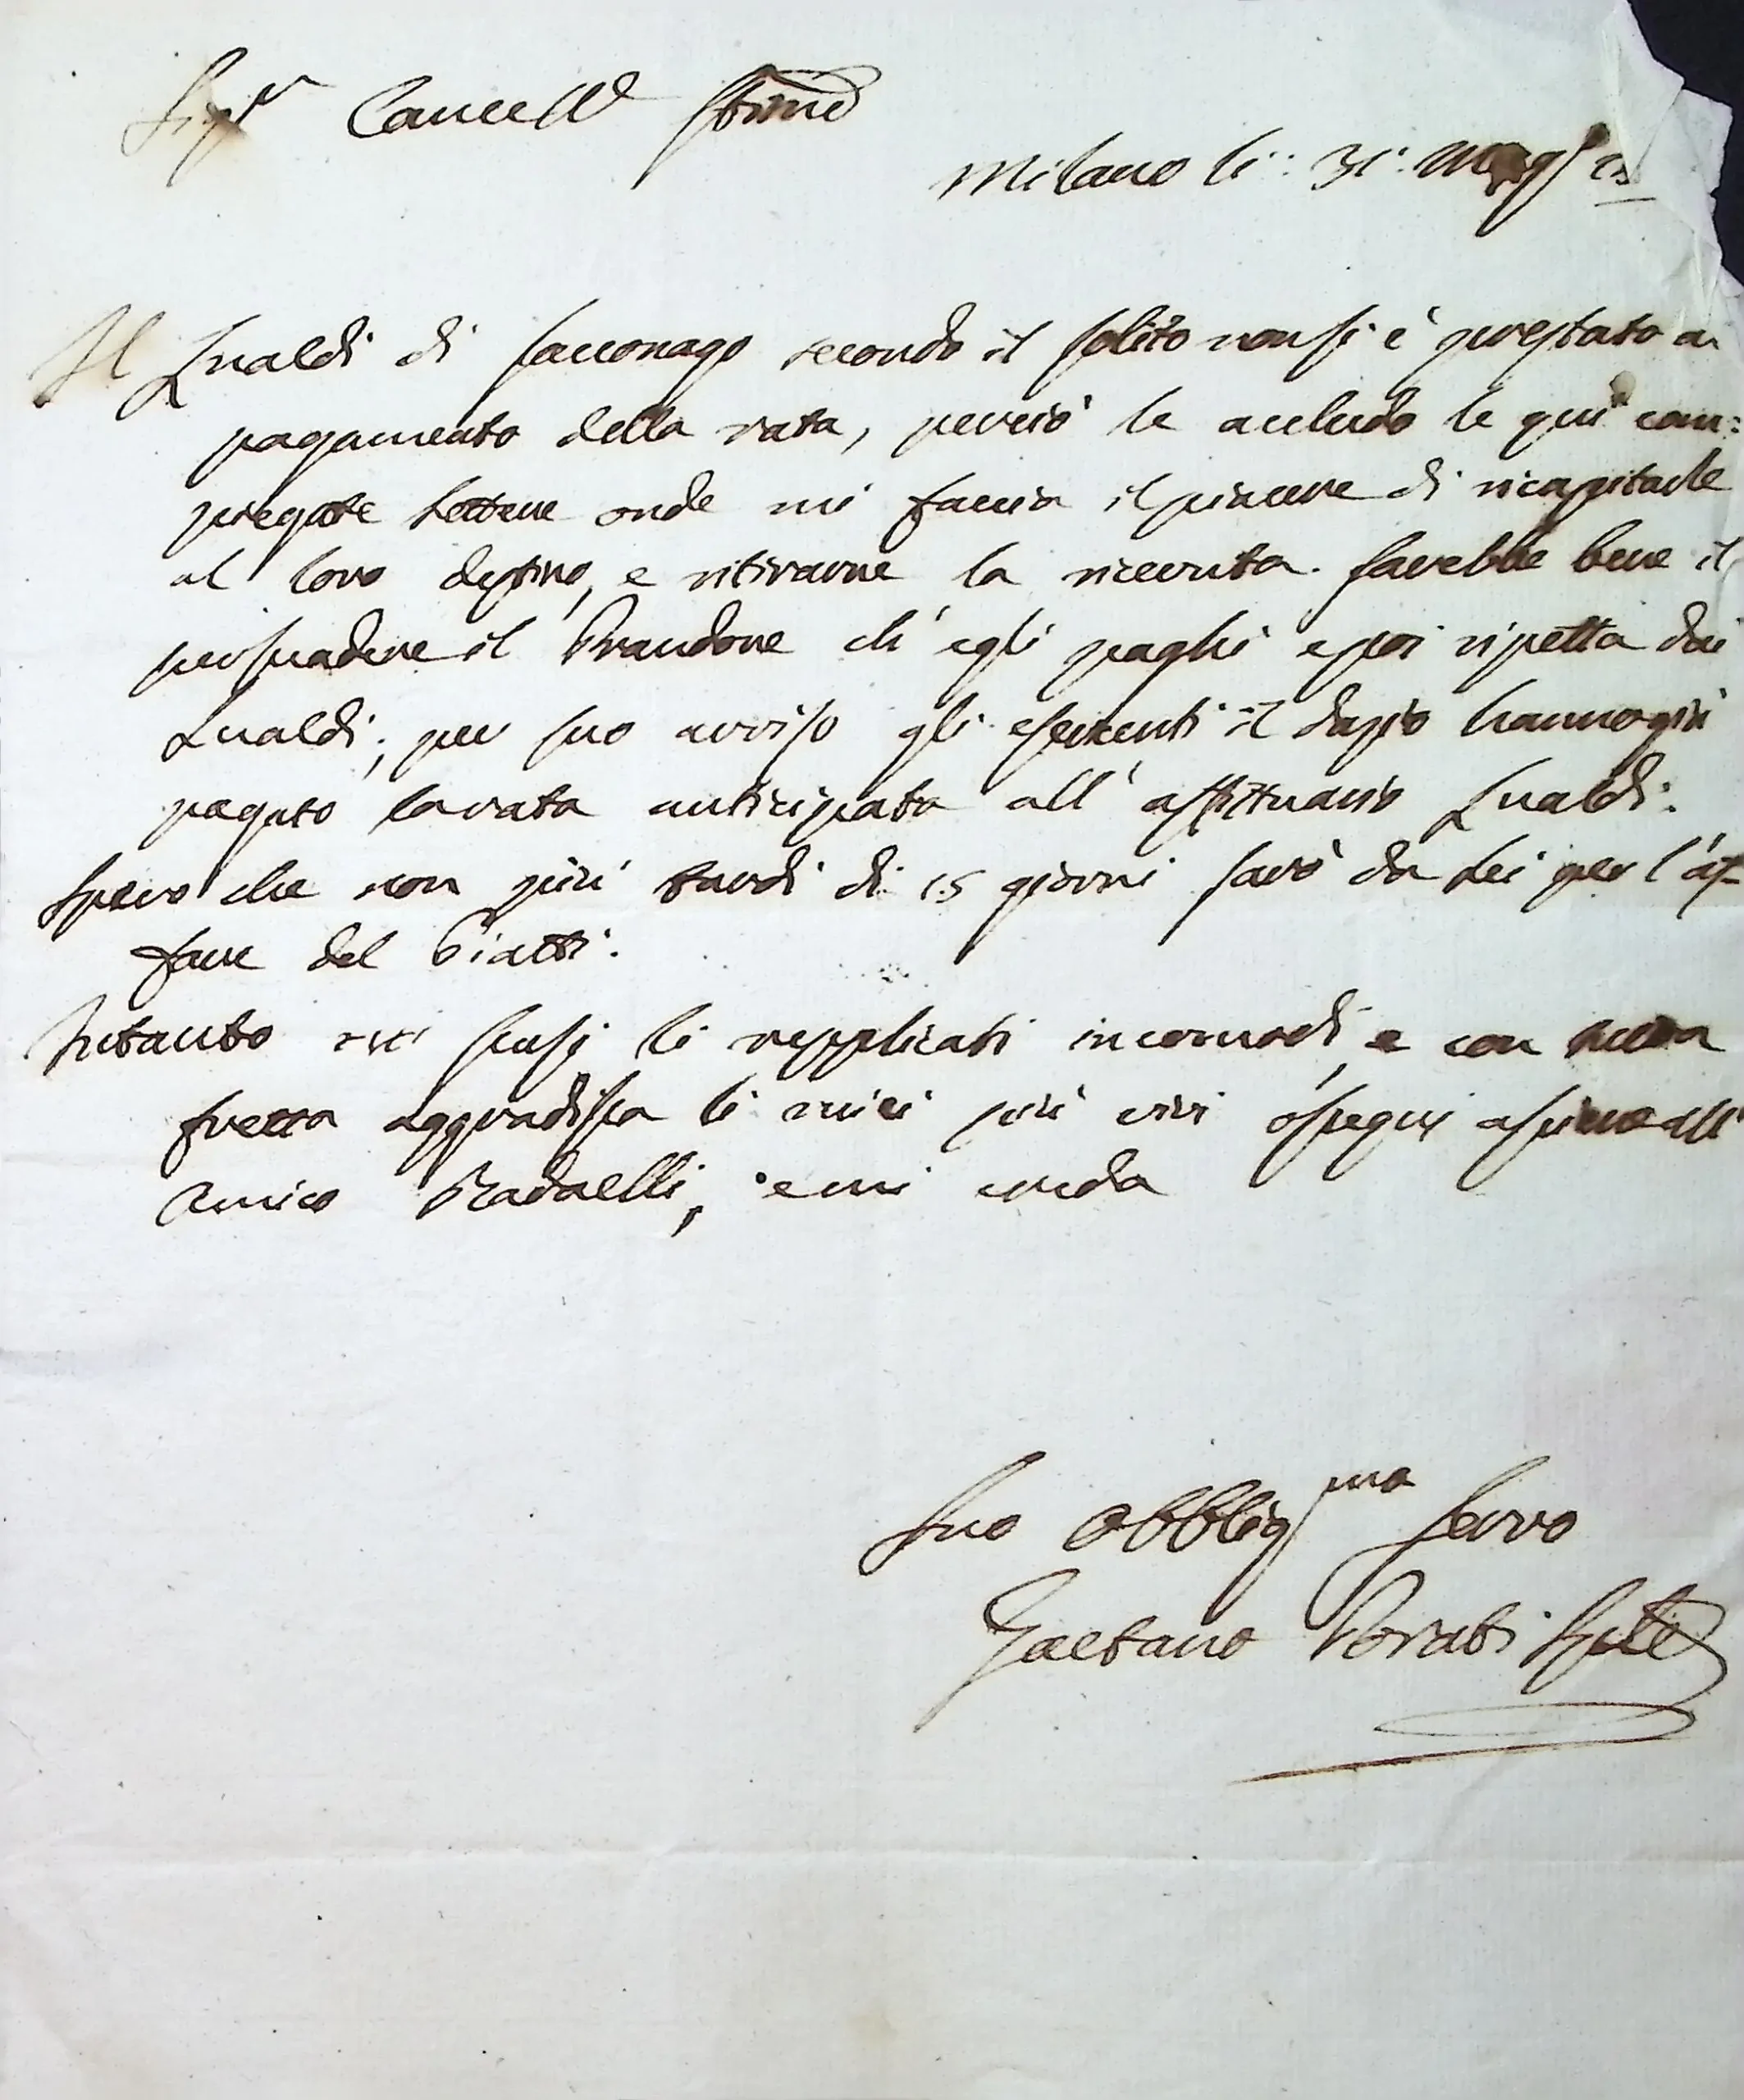 Sig.r Cancell.e Stim.o
Milano li: 31: Magg.o
Il Lualdi di Sacconago secondo il solito non si è prestato a
pagamento della rata, perciò le accludo le qui com:
piegate Lettere onde mi faccia il piacere di ricapitarle
al loro destino, e ritirarne la ricevuta. Sarebbe bene il
persuadere il Prandone ch'egli paghi e poi ripetta dai
Lualdi; per suo avviso gli esercenti il dazio hanno già
pagato la rata anticipata all'affittuario Lualdi.
Spero che non più tardi di 15 giorni sarò da Lei per l'af-
fare del Piatti.
Intanto mi scusi li repplicati incomodi, e con tutta
fretta aggradisca li miei più vivi ossequi assieme all'
Amico Radaelli, e mi creda
Suo Obblig.mo Servo
Gaetano Porati